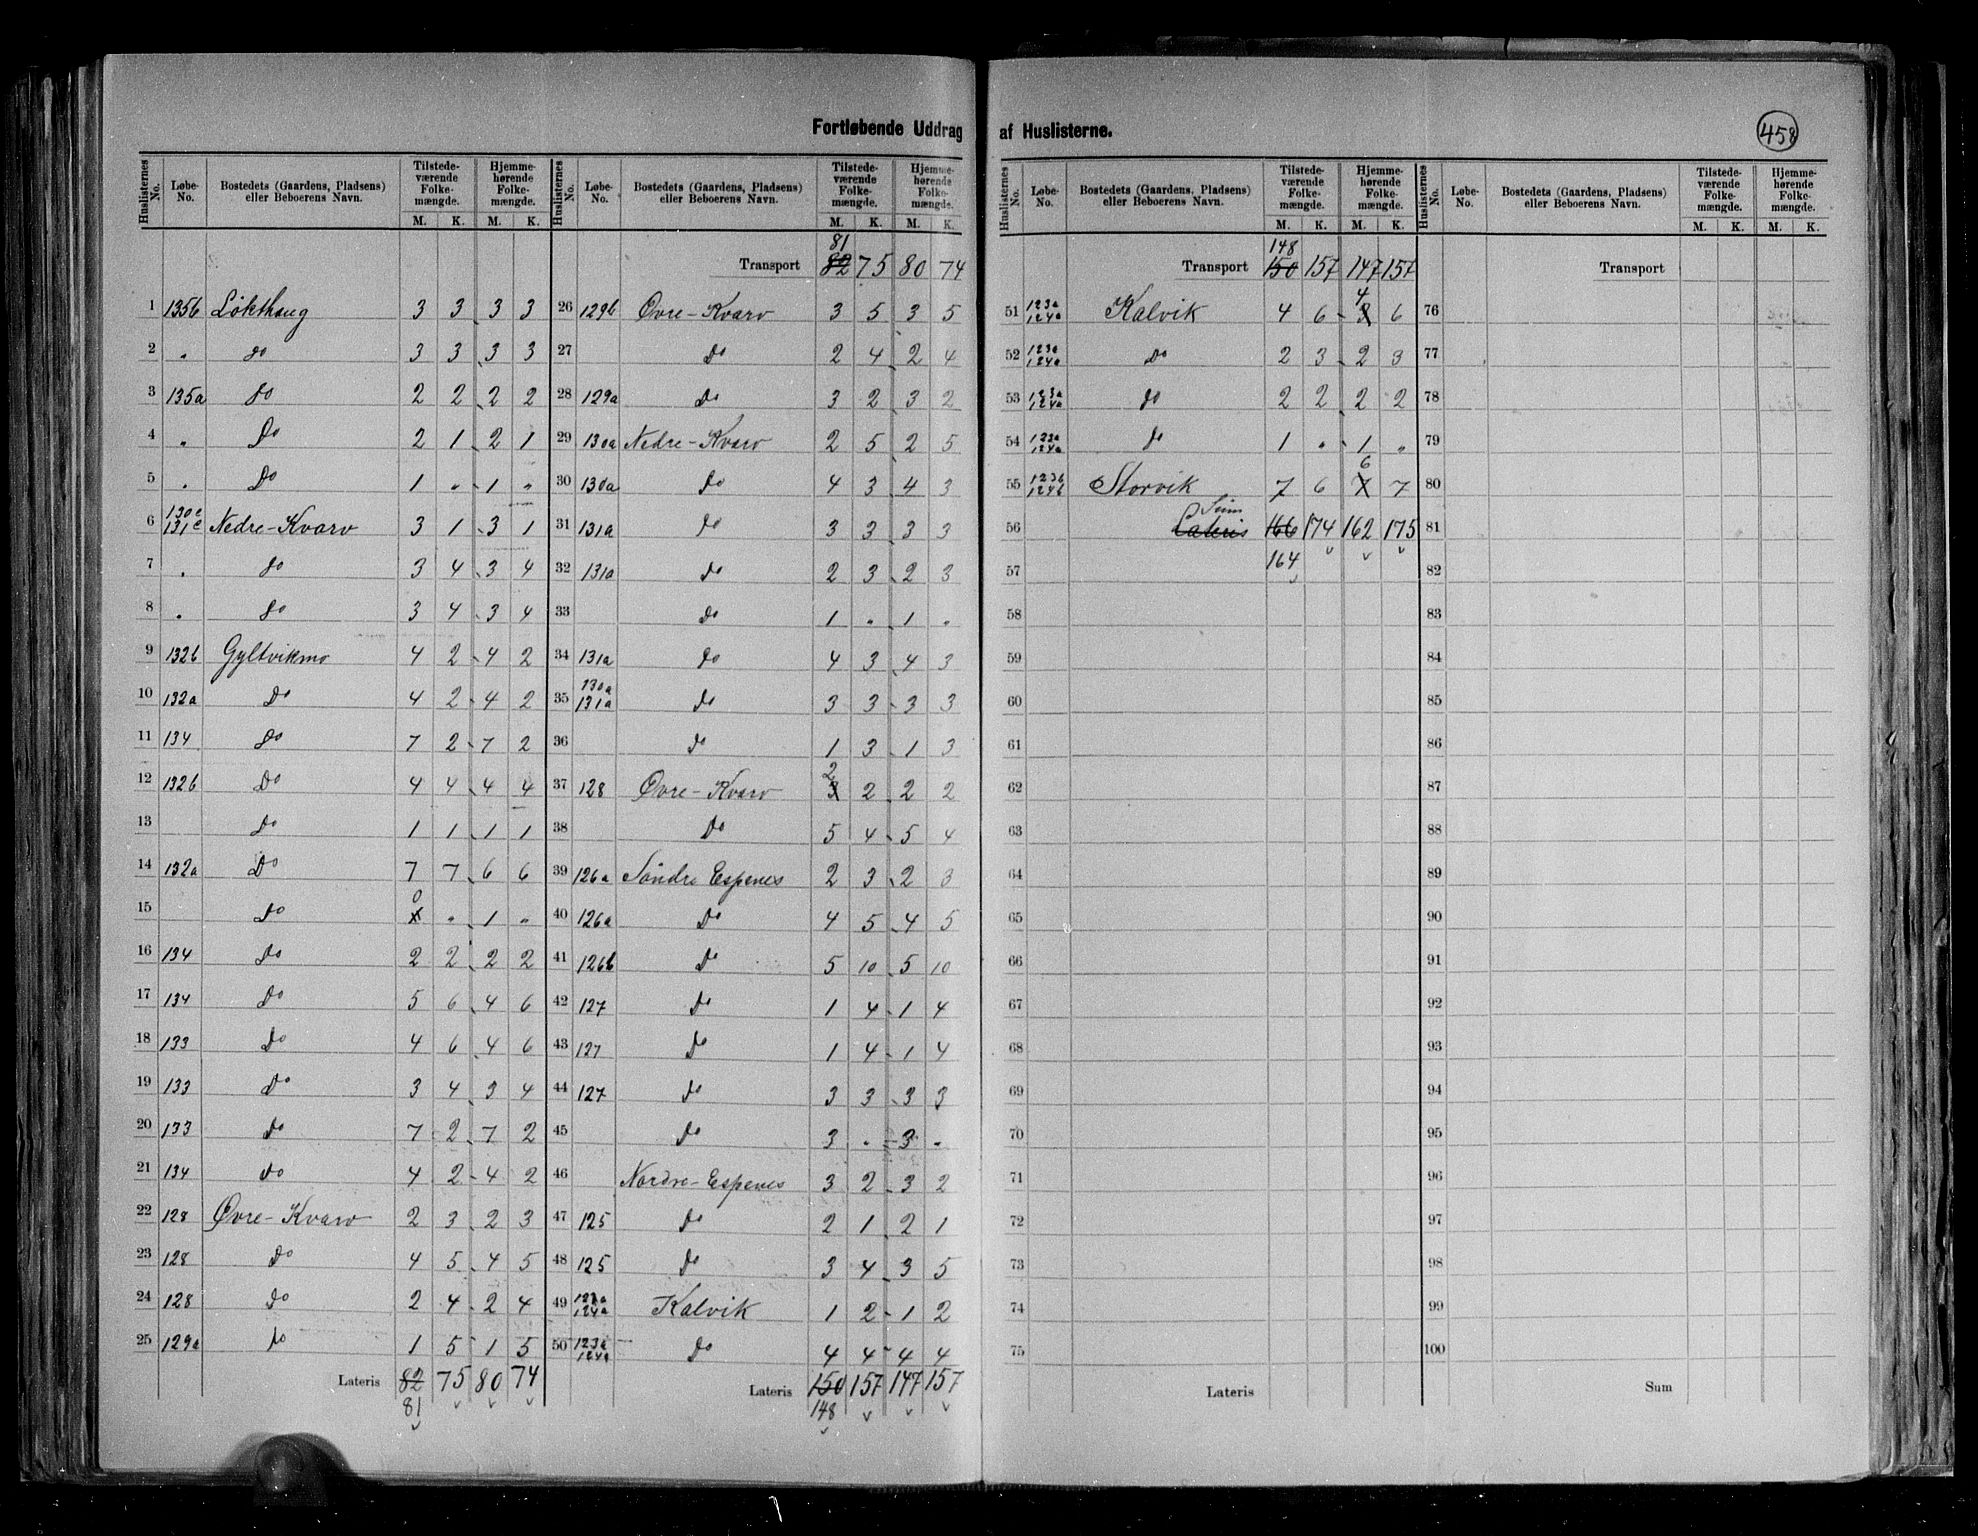 Fortløbende Uddrag af Huslisterne.
458
Huslisternes No. Løbe-No. Bostedets (Gaardens, Pladsens) eller Beboerens Navn. Tilstedeværende Folkemængde. M. K. Hjemmehørende Folkemængde. M. K.
1 135b Løkthaug 3 3 3 3
2 " do 3 3 3 3
3 135a do 2 2 2 2
4 " Do 2 1 2 1
5 " Do 1 " 1 "
6 130c 131c Nedre-Kvarv 3 1 3 1
7 " do 3 4 3 4
8 " do 3 4 3 4
9 132b Gyltvikmo 4 2 4 2
10 132a Do 4 2 4 2
11 134 do 7 2 7 2
12 132b Do 4 4 4 4
13 Do 1 1 1 1
14 132a Do 7 7 6 6
15 Do 0 " 1 "
16 134 Do 2 2 2 2
17 134 Do 5 6 4 6
18 133 Do 4 6 4 6
19 133 Do 3 4 3 4
20 133 do 7 2 7 2
21 134 do 4 2 4 2
22 128 Øvre-Kvarv 2 3 2 3
23 128 Do 4 5 4 5
24 128 Do 2 4 2 4
25 129a do 1 5 1 5
Lateris 82 75 80 74
81
Huslisternes No. Løbe-No. Bostedets (Gaardens, Pladsens) eller Beboerens Navn. Tilstedeværende Folkemængde. M. K. Hjemmehørende Folkemængde. M. K.
81
Transport 82 75 80 74
26 129b Øvre-Kvarv 3 5 3 5
27 Do 2 4 2 4
28 129a Do 3 2 3 2
29 130a Nedre-Kvarv 2 5 2 5
30 130a Do 4 3 4 3
31 131a Do 3 3 3 3
32 131a Do 2 3 2 3
33 Do 1 " 1 "
34 131a Do 4 3 4 3
35 130a 131a Do 3 3 3 3
36 Do 1 3 1 3
37 128 Øvre-Kvarv 2 3 2 2 2
38 Do 5 4 5 4
39 126a Søndre Espenes 2 3 2 3
40 126a Do 4 5 4 5
41 126b Do 5 10 5 10
42 127 Do 1 4 1 4
43 127 Do 1 4 1 4
44 127 Do 3 3 3 3
45 Do 3 " 3 "
46 Nordre-Espenes 3 2 3 2
47 125 Do 2 1 2 1
48 125 Do 3 4 3 5
49 123a 124a Kalvik 1 2 1 2
50 123a 124a Do 4 4 4 4
Lateris 150 157 147 157
148
Huslisternes No. Løbe-No. Bostedets (Gaardens, Pladsens) eller Beboerens Navn. Tilstedeværende Folkemængde. M. K. Hjemmehørende Folkemængde. M. K.
148
Transport 150 157 147 157
51 123a 124a Kalvik 4 6 4 3 6
52 123a 124a Do 2 3 2 3
53 123a 124a Do 2 2 2 2
54 123a 124a Do 1 " 1 "
55 123b 124b Storvik 7 6 6 7 7
56 Lateris Sum 166 174 162 175
57 164
58
59
60
61
62
63
64
65
66
67
68
69
70
71
72
73
74
75
Lateris
Huslisternes No. Løbe-No. Bostedets (Gaardens, Pladsens) eller Beboerens Navn. Tilstedeværende Folkemængde. M. K. Hjemmehørende Folkemængde. M. K.
Transport
76
77
78
79
80
81
82
83
84
85
86
87
88
89
90
91
92
93
94
95
96
97
98
99
100
Sum